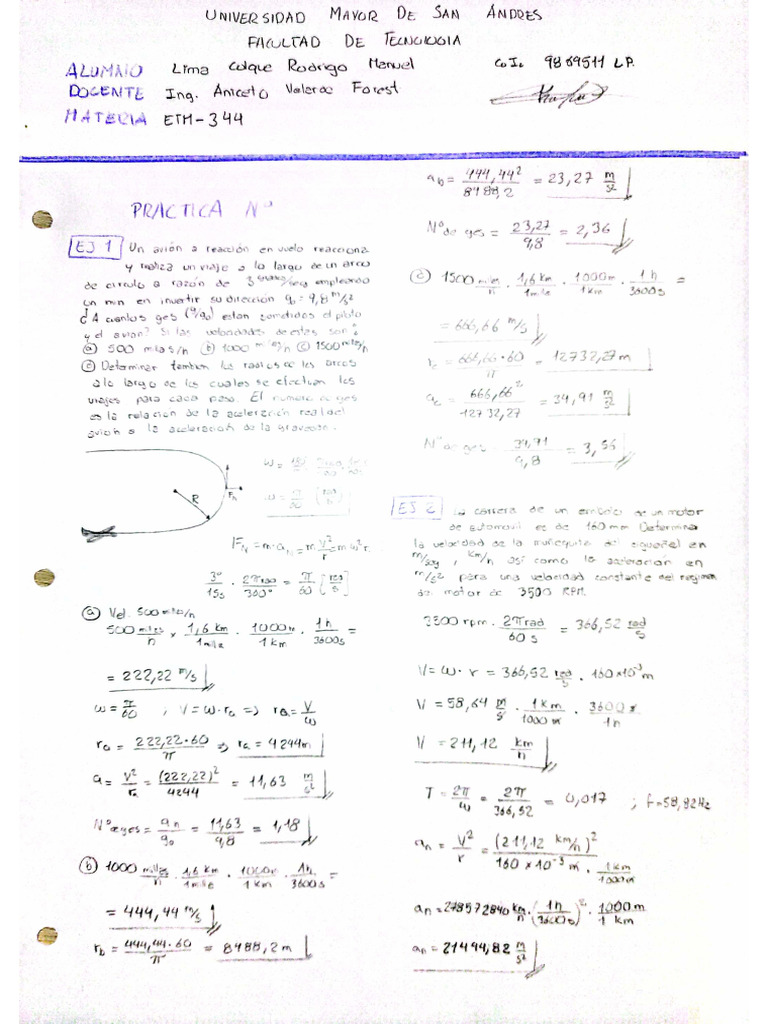 UNIVERSIDAD MAYOR DE SAN ANDRES
FACULTAD DE TECNOLOGIA
ALUMNO Lima Colque Rodrigo Manuel C.I. 9869511 L.P.
DOCENTE Ing. Aniceto Valerde Forest
MATERIA ETM-344
PRACTICA Nº
EJ 1 Un avión a reacción en vuelo reacciona
y realiza un viaje a lo largo de un arco
de circulo a razón de 3 grados/seg empleando
un min en invertir su dirección g₀ = 9,8 m/s²
¿A cuantos ges (a/g₀) estan sometidos el piloto
y el avion? Si las velocidades de estas son:
(a) 500 millas/h (b) 1000 millas/h (c) 1500 millas/h
(c) Determinar tambien los radios de los arcos
a lo largo de los cuales se efectuan los
viajes para cada paso. El numero de ges
es la relación de la aceleración real del
avión a la aceleración de la gravedad.
R
Fₙ
ω = π/60 (rad/s)
Fₙ = m·aₙ = m V²/r = m ω² r.
3°/15s · 2π rad/360° = π/60 [rad/s]
(a) Vel. 500 millas/h
500 millas/h × 1,6 km/1 mille · 1000m/1 km · 1h/3600s =
= 222,22 m/s
ω = π/60 ; V = ω·ra => ra = V/ω
ra = 222,22·60/π => ra = 4244m
a = V²/ra = (222,22)²/4244 = 11,63 m/s²
Nº ges = an/g₀ = 11,63/9,8 = 1,18
(b) 1000 milles/h · 1,6 km/1 mille · 1000m/1 km · 1h/3600s =
= 444,44 m/s
rb = 444,44·60/π = 8488,2 m
ab = 444,44²/8488,2 = 23,27 m/s²
Nº de ges = 23,27/9,8 = 2,36
(c) 1500 milles/h · 1,6 km/1 mile · 1000m/1 km · 1h/3600s =
= 666,66 m/s
rc = 666,66·60/π = 12732,27 m
ac = 666,66²/12732,27 = 34,91 m/s²
Nº de ges 34,91/9,8 = 3,56
EJ 2 La carrera de un embolo de un motor
de automovil es de 160 mm Determina
la velocidad de la muñequilla del cigueñal en
m/seg, km/h así como la aceleración en
m/s² para una velocidad constante del regimen
del motor de 3500 RPM.
3500 rpm · 2π rad/60 s = 366,52 rad/s
V = ω · r = 366,52 rad/s · 160×10⁻³ m
V = 58,64 m/s · 1 km/1000 m · 3600 s/1h
V = 211,12 km/h
T = 2π/ω = 2π/366,52 = 0,017 ; f = 58,82Hz
an = V²/r = (211,12 km/h)²/160 × 10⁻³ m · 1 km/1000m
an = 278572840 km/h · (1h/3600s)² · 1000m/1 km
an = 21494,82 m/s²